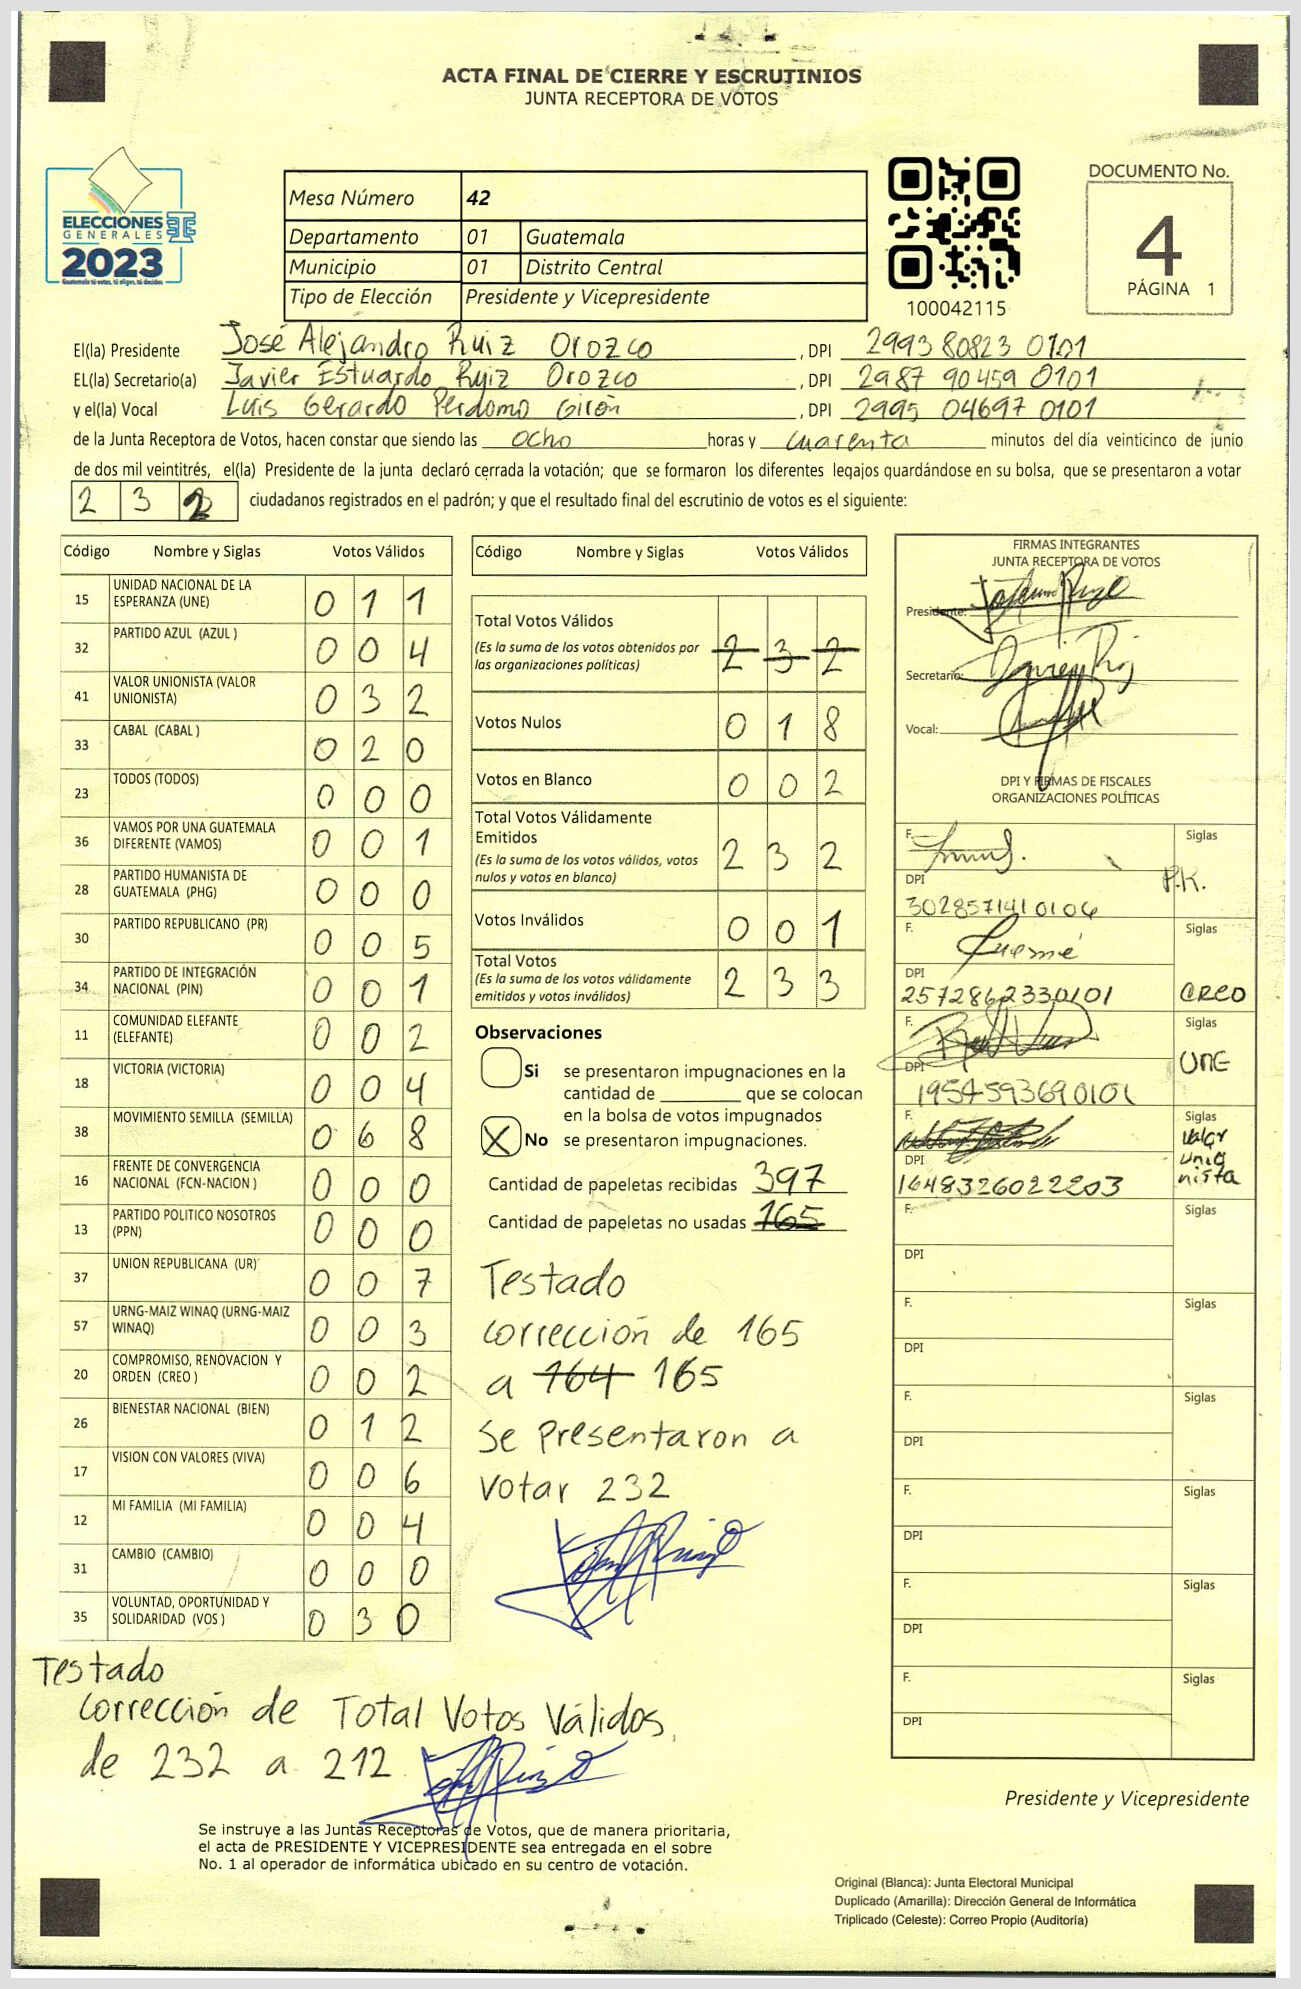 ACTA FINAL DE CIERRE Y ESCRUTINIOS
JUNTA RECEPTORA DE VOTOS
ELECCIONES
GENERALES
2023
Guatemala tú votas, tú eliges, tú decides
Mesa Número 42
Departamento 01 Guatemala
Municipio 01 Distrito Central
Tipo de Elección Presidente y Vicepresidente
100042115
DOCUMENTO No.
4
PÁGINA 1
El(la) Presidente José Alejandro Ruiz Orozco , DPI 2993 80823 0101
EL(la) Secretario(a) Javier Estuardo Ruiz Orozco , DPI 2987 90459 0101
y el(la) Vocal Luis Gerardo Perdomo Girón , DPI 2995 04697 0101
de la Junta Receptora de Votos, hacen constar que siendo las ocho horas y cuarenta minutos del día veinticinco de junio
de dos mil veintitrés, el(la) Presidente de la junta declaró cerrada la votación; que se formaron los diferentes legajos quardándose en su bolsa, que se presentaron a votar
2 3 2 ciudadanos registrados en el padrón; y que el resultado final del escrutinio de votos es el siguiente:
Código Nombre y Siglas Votos Válidos
15 UNIDAD NACIONAL DE LA
ESPERANZA (UNE) 0 1 1
32 PARTIDO AZUL (AZUL ) 0 0 4
41 VALOR UNIONISTA (VALOR
UNIONISTA) 0 3 2
33 CABAL (CABAL ) 0 2 0
23 TODOS (TODOS) 0 0 0
36 VAMOS POR UNA GUATEMALA
DIFERENTE (VAMOS) 0 0 1
28 PARTIDO HUMANISTA DE
GUATEMALA (PHG) 0 0 0
30 PARTIDO REPUBLICANO (PR) 0 0 5
34 PARTIDO DE INTEGRACIÓN
NACIONAL (PIN) 0 0 1
11 COMUNIDAD ELEFANTE
(ELEFANTE) 0 0 2
18 VICTORIA (VICTORIA) 0 0 4
38 MOVIMIENTO SEMILLA (SEMILLA) 0 6 8
16 FRENTE DE CONVERGENCIA
NACIONAL (FCN-NACION ) 0 0 0
13 PARTIDO POLITICO NOSOTROS
(PPN) 0 0 0
37 UNION REPUBLICANA (UR) 0 0 7
57 URNG-MAIZ WINAQ (URNG-MAIZ
WINAQ) 0 0 3
20 COMPROMISO, RENOVACION Y
ORDEN (CREO ) 0 0 2
26 BIENESTAR NACIONAL (BIEN) 0 1 2
17 VISION CON VALORES (VIVA) 0 0 6
12 MI FAMILIA (MI FAMILIA) 0 0 4
31 CAMBIO (CAMBIO) 0 0 0
35 VOLUNTAD, OPORTUNIDAD Y
SOLIDARIDAD (VOS ) 0 3 0
Código Nombre y Siglas Votos Válidos
Total Votos Válidos
(Es la suma de los votos obtenidos por
las organizaciones políticas) 2 3 2
Votos Nulos 0 1 8
Votos en Blanco 0 0 2
Total Votos Válidamente
Emitidos
(Es la suma de los votos válidos, votos
nulos y votos en blanco) 2 3 2
Votos Inválidos 0 0 1
Total Votos
(Es la suma de los votos válidamente
emitidos y votos inválidos) 2 3 3
Observaciones
Si se presentaron impugnaciones en la
cantidad de ________ que se colocan
en la bolsa de votos impugnados
X No se presentaron impugnaciones.
Cantidad de papeletas recibidas 397
Cantidad de papeletas no usadas 165
Testado
corrección de 165
a 164 165
Se presentaron a
votar 232
FIRMAS INTEGRANTES
JUNTA RECEPTORA DE VOTOS
Presidente:
Secretario:
Vocal:
DPI Y FIRMAS DE FISCALES
ORGANIZACIONES POLÍTICAS
F. Siglas
DPI P.K.
3028571410104
F. Siglas
DPI
2572862330101 CREO
F. Siglas
DPI UNE
1954593690101
F. Siglas
Valor
DPI unio
1648326022203 nista
F. Siglas
DPI
F. Siglas
DPI
F. Siglas
DPI
F. Siglas
DPI
F. Siglas
DPI
F. Siglas
DPI
Testado
corrección de Total Votos Válidos,
de 232 a 212
Presidente y Vicepresidente
Se instruye a las Juntas Receptoras de Votos, que de manera prioritaria,
el acta de PRESIDENTE Y VICEPRESIDENTE sea entregada en el sobre
No. 1 al operador de informática ubicado en su centro de votación.
Original (Blanca): Junta Electoral Municipal
Duplicado (Amarilla): Dirección General de Informática
Triplicado (Celeste): Correo Propio (Auditoría)